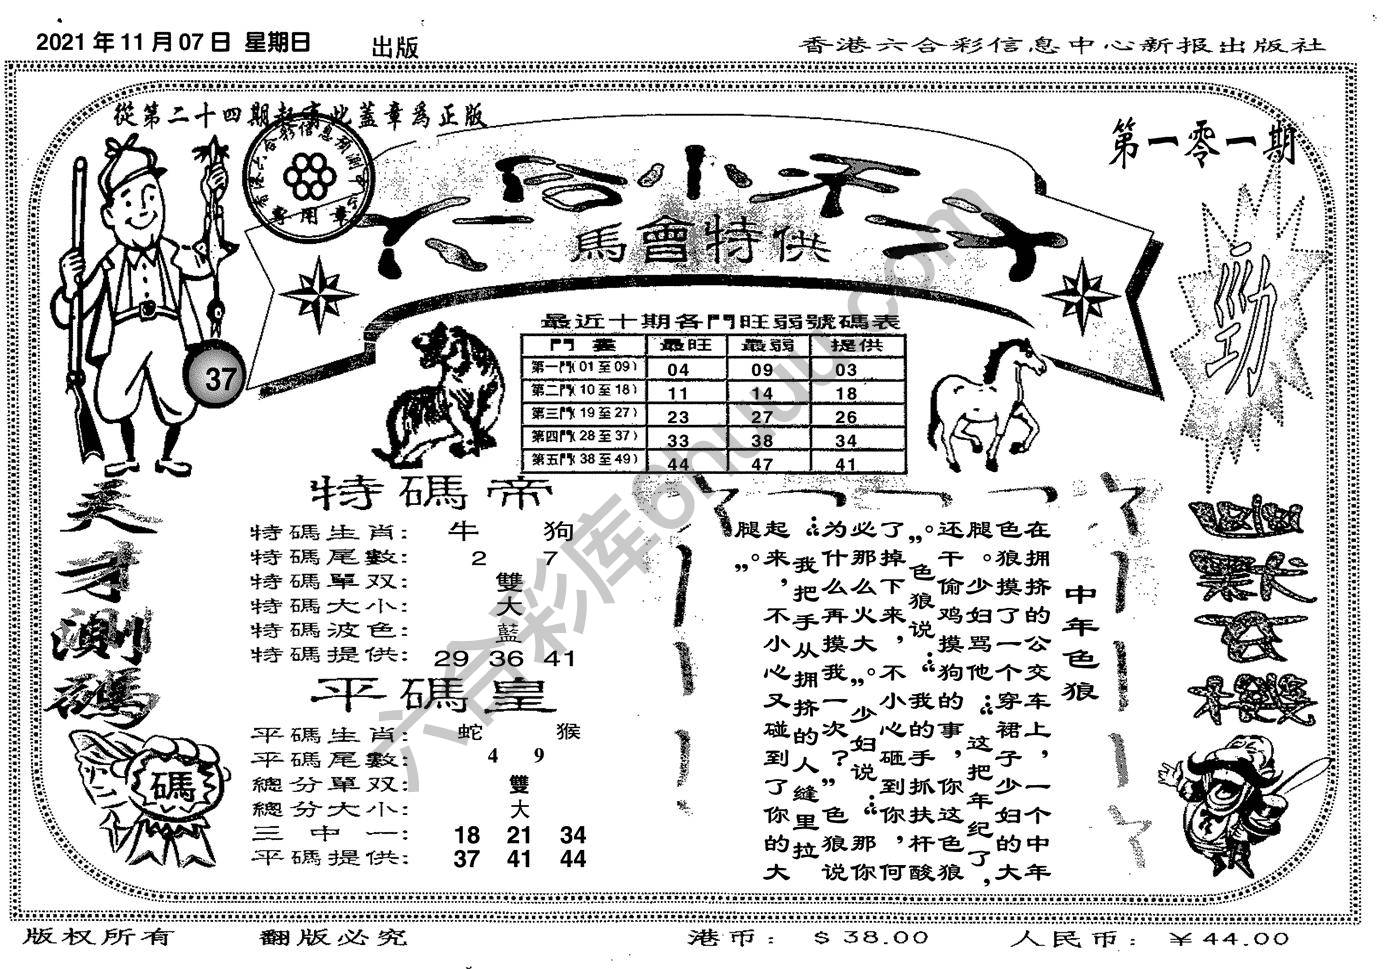 2021年11月07日 星期日
出版
香港六合彩信息中心新报出版社
從第二十四期起寄此蓋章爲正版
香港六合彩信息預測中心
專用章
第一零一期
六合小天子
馬會特供
勁
37
最近十期各門旺弱號碼表
門數 最旺 最弱 提供
第一門(01至09) 04 09 03
第二門(10至18) 11 14 18
第三門(19至27) 23 27 26
第四門(28至37) 33 38 34
第五門(38至49) 44 47 41
天才測碼
碼
特碼帝
特碼生肖: 牛 狗
特碼尾數: 2 7
特碼單双: 雙
特碼大小: 大
特碼波色: 藍
特碼提供: 29 36 41
平碼皇
平碼生肖: 蛇 猴
平碼尾數: 4 9
總分單双: 雙
總分大小: 大
三中一: 18 21 34
平碼提供: 37 41 44
中年色狼
在拥挤的公交车上,一个中年
色狼摸了一个穿裙子少妇的大
腿。少妇骂他:“这把年纪了,
还干偷鸡摸狗的事,你这色狼
。”色狼说:“我的手抓扶杆酸
了,掉下来,不小心砸到你,何
必那么火大。”少妇说:“那你
为什么再摸我一次?”色狼说
:“我把手从拥挤的人缝里拉
起来,不小心又碰到了你的大
腿。”
幽默玄機
版权所有
翻版必究
港币: $38.00
人民币: ¥44.00
六合彩库6huuu.com